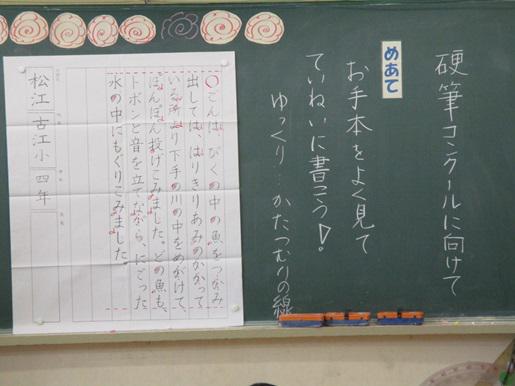 硬筆コンクールに向けて
めあて
お手本をよく見て
ていねいに書こう!。
ゆっくり…かたつむりの線
ごんは、びくの中の魚をつかみ
出しては、はりきりあみのかかって
いる所より下手の川の中をめがけて、
ぽんぽん投げこみました。どの魚も、
トボンと音を立てながら、にごった
水の中にもぐりこみました。
松江 古江小 四年